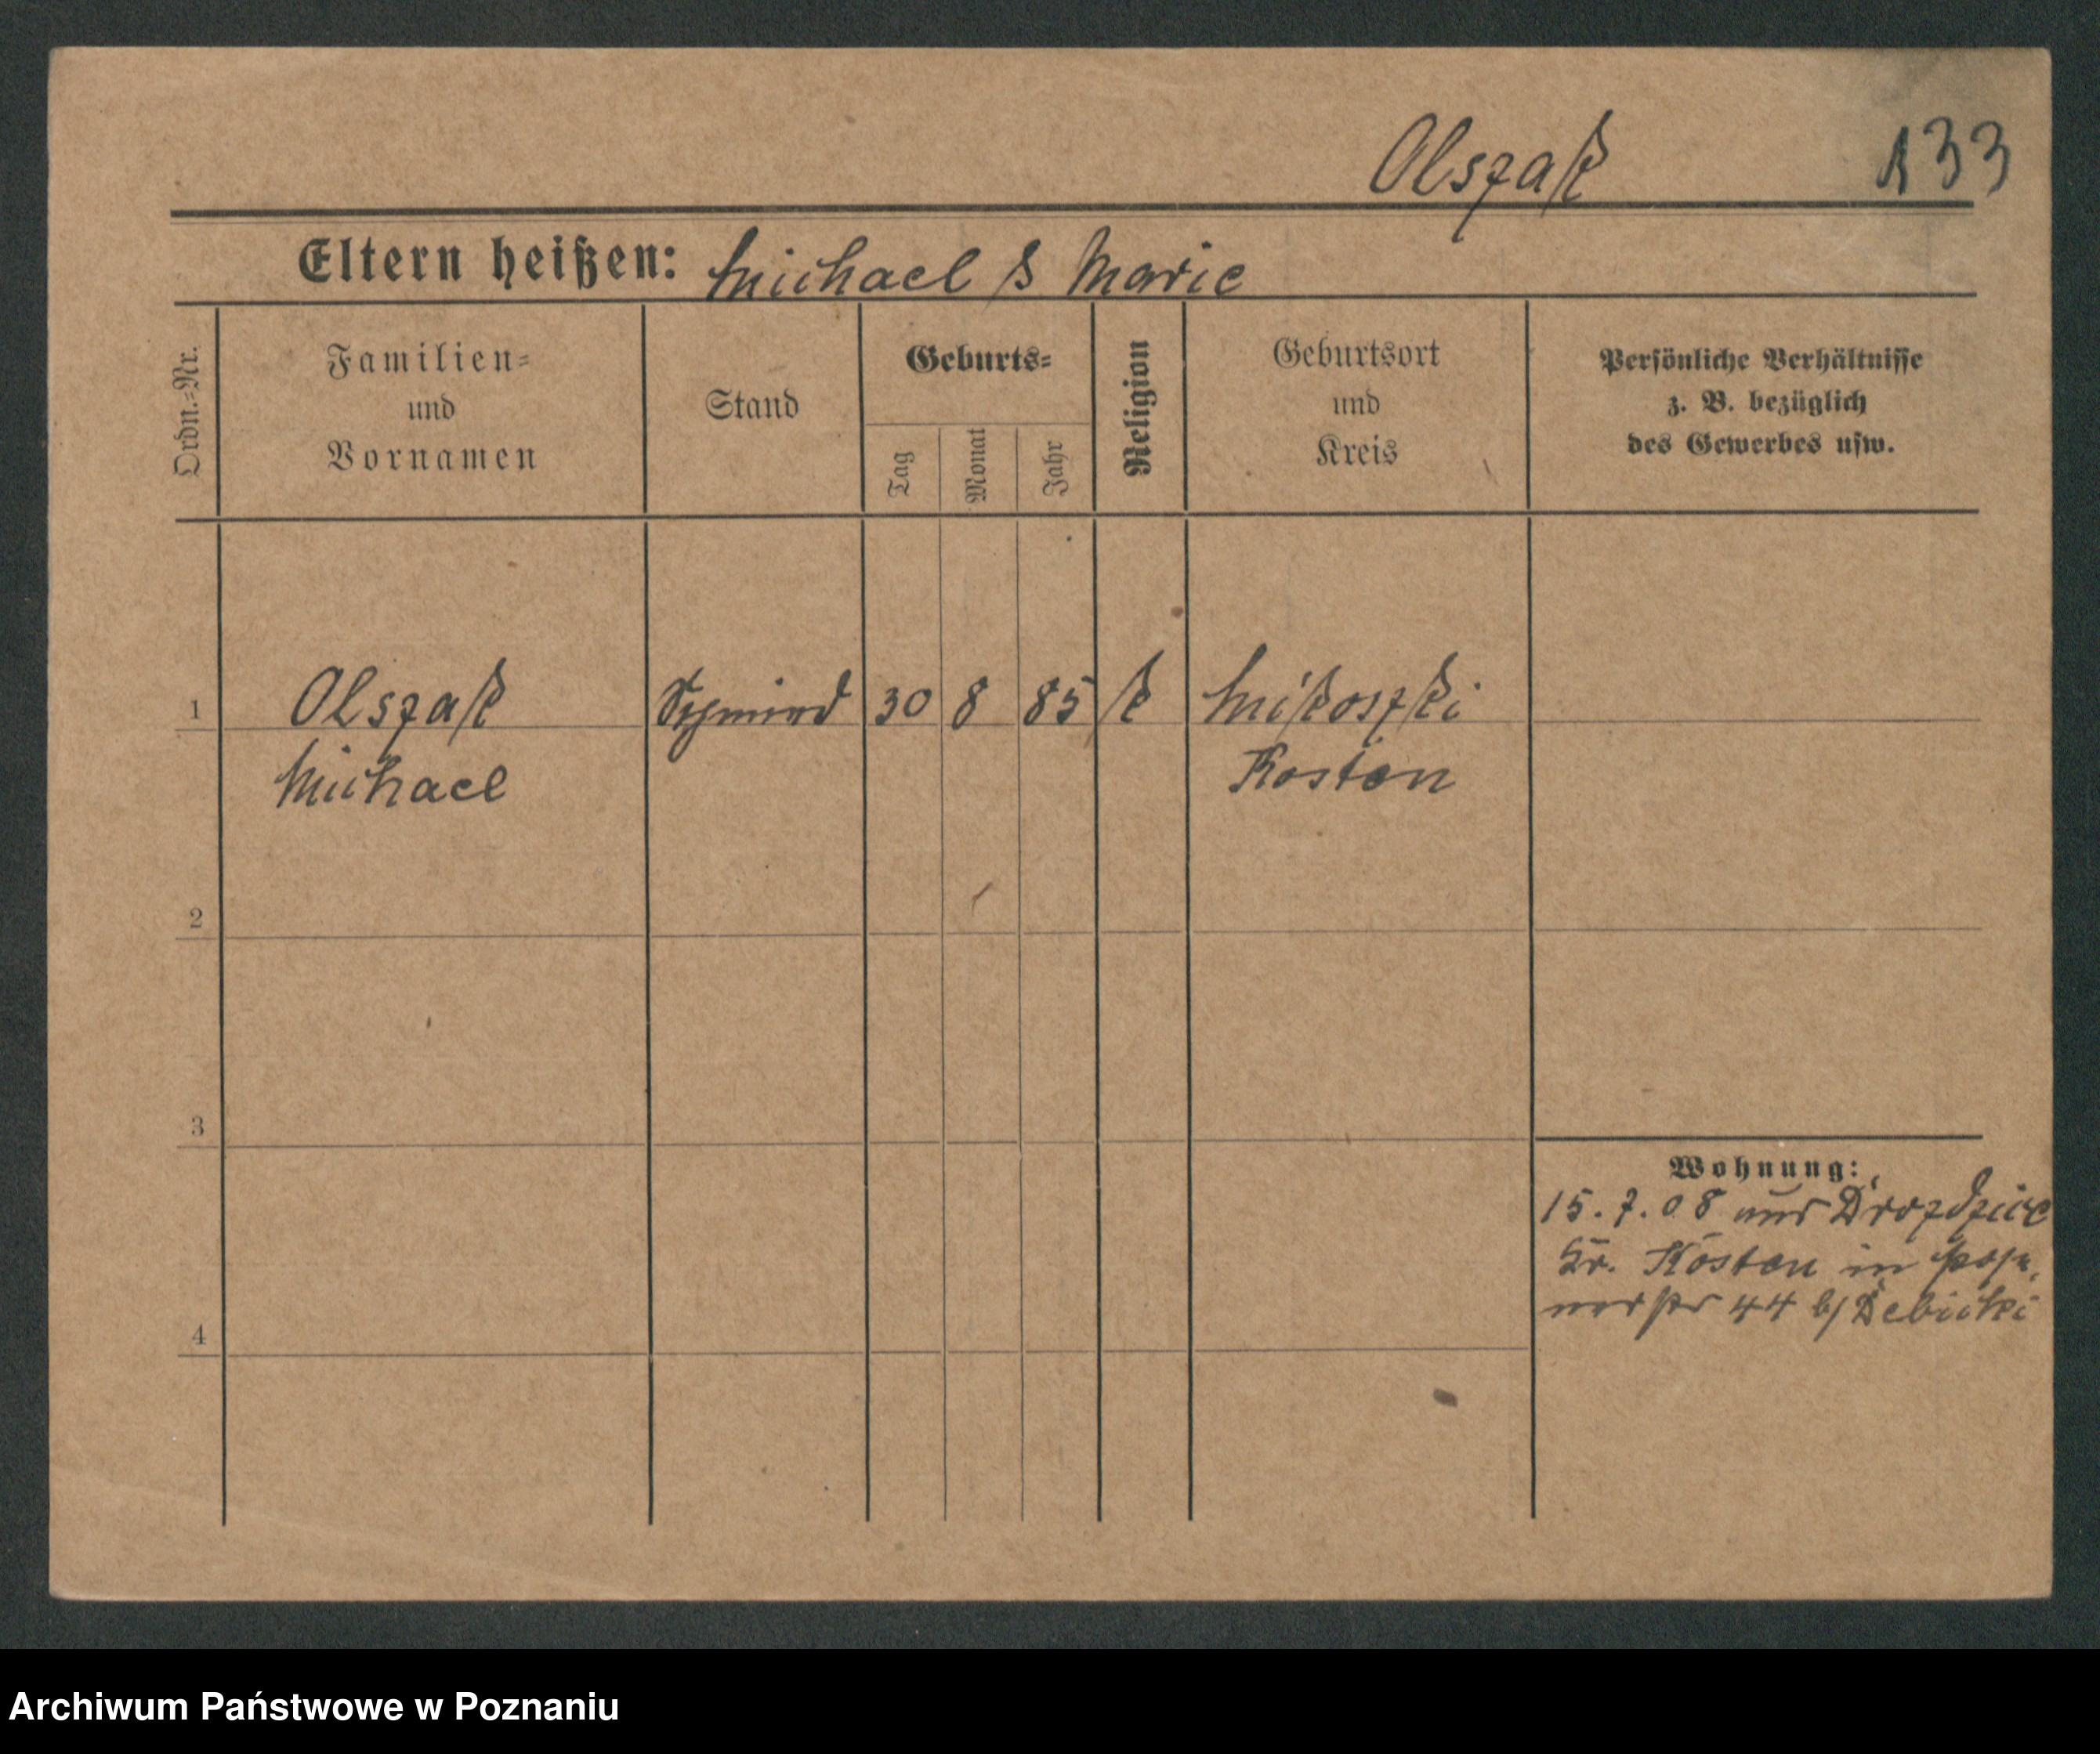 Olszak 133
Eltern heißen: Michael & Marie
Ordn.-Nr.
Familien-
und
Vornamen
Stand
Geburts-
Tag
Monat
Jahr
Religion
Geburtsort
und
Kreis
Persönliche Verhältnisse
z. B. bezüglich
des Gewerbes usw.
1 Olszak 30 8 85 k Mikoszki
Michael Kosten
2
3
4
Wohnung:
15. 7. 08 aus Drozdzice
Kr. Kosten in Pose
44 b/ Debicki
Archiwum Państwowe w Poznaniu